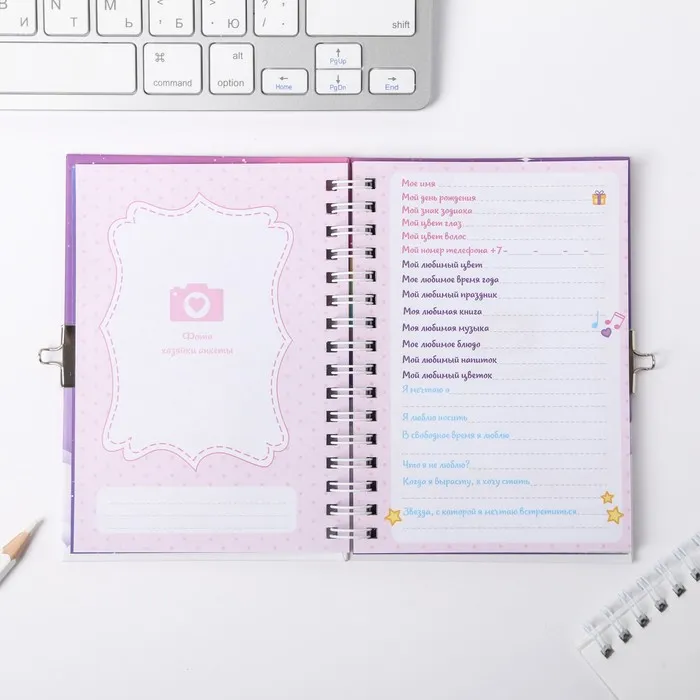 И Т Ь Б Ю ?
N M < > /
, . shift
alt
⌘
command option
PgUp
Home PgDn End
Фото
хозяйки анкеты
Мое имя
Мой день рождения
Мой знак зодиака
Мой цвет глаз
Мой цвет волос
Мой номер телефона +7 - - - -
Мой любимый цвет
Мое любимое время года
Мой любимый праздник
Моя любимая книга
Моя любимая музыка
Мое любимое блюдо
Мой любимый напиток
Мой любимый цветок
Я мечтаю о
Я люблю носить
В свободное время я люблю
Что я не люблю?
Когда я вырасту, я хочу стать
Звезда, с которой я мечтаю встретиться